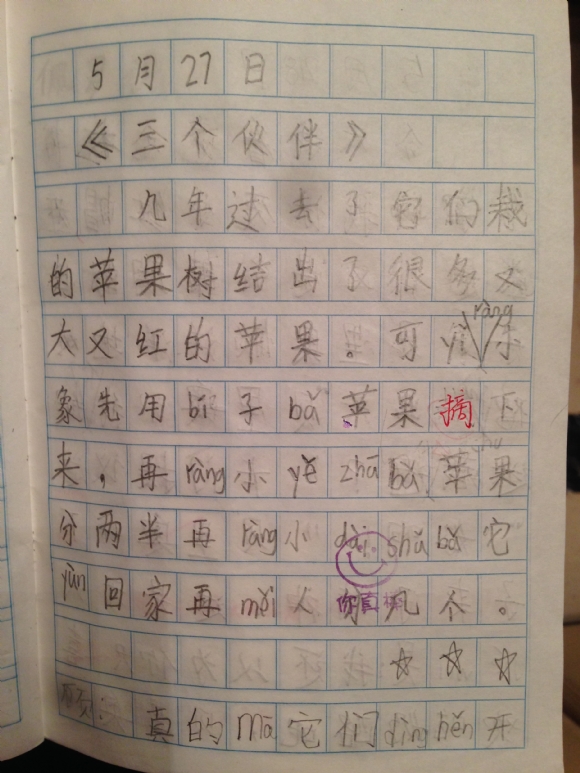 5月27日
《三个伙伴》
几年过去了它们栽
的苹果树结出了很多又
大又红的苹果。可yǐ ràng小
象先用bí子bǎ苹果摘下
来，再ràng小yě zhū bǎ苹果
分两半再ràng小dài shǔ bǎ它
yùn回家再měi人分几个。
你真棒
☆☆☆
真的ma它们dìng hěn开